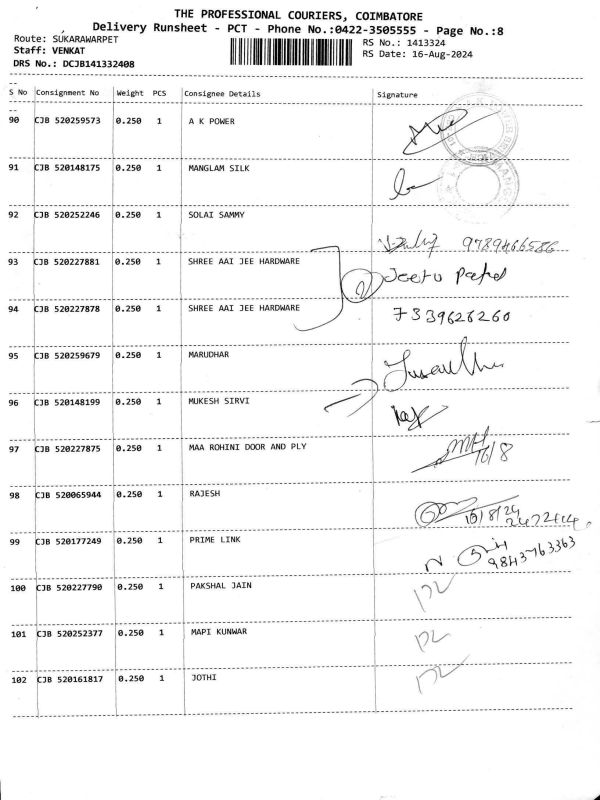 THE PROFESSIONAL COURIERS, COIMBATORE
Delivery Runsheet - PCT - Phone No.:0422-3505555 - Page No.:8
Route: SUKARAWARPET RS No.: 1413324
Staff: VENKAT RS Date: 16-Aug-2024
DRS No.: DCJB141332408
S No Consignment No Weight PCS Consignee Details Signature
90 CJB 520259573 0.250 1 A K POWER
91 CJB 520148175 0.250 1 MANGLAM SILK
92 CJB 520252246 0.250 1 SOLAI SAMMY
9789466586
93 CJB 520227881 0.250 1 SHREE AAI JEE HARDWARE
2 Jeetu Patel
94 CJB 520227878 0.250 1 SHREE AAI JEE HARDWARE
7339626260
95 CJB 520259679 0.250 1 MARUDHAR
96 CJB 520148199 0.250 1 MUKESH SIRVI
97 CJB 520227875 0.250 1 MAA ROHINI DOOR AND PLY
16/8
98 CJB 520065944 0.250 1 RAJESH
16/8/24
99 CJB 520177249 0.250 1 PRIME LINK
9843763363
100 CJB 520227790 0.250 1 PAKSHAL JAIN
101 CJB 520252377 0.250 1 MAPI KUNWAR
102 CJB 520161817 0.250 1 JOTHI